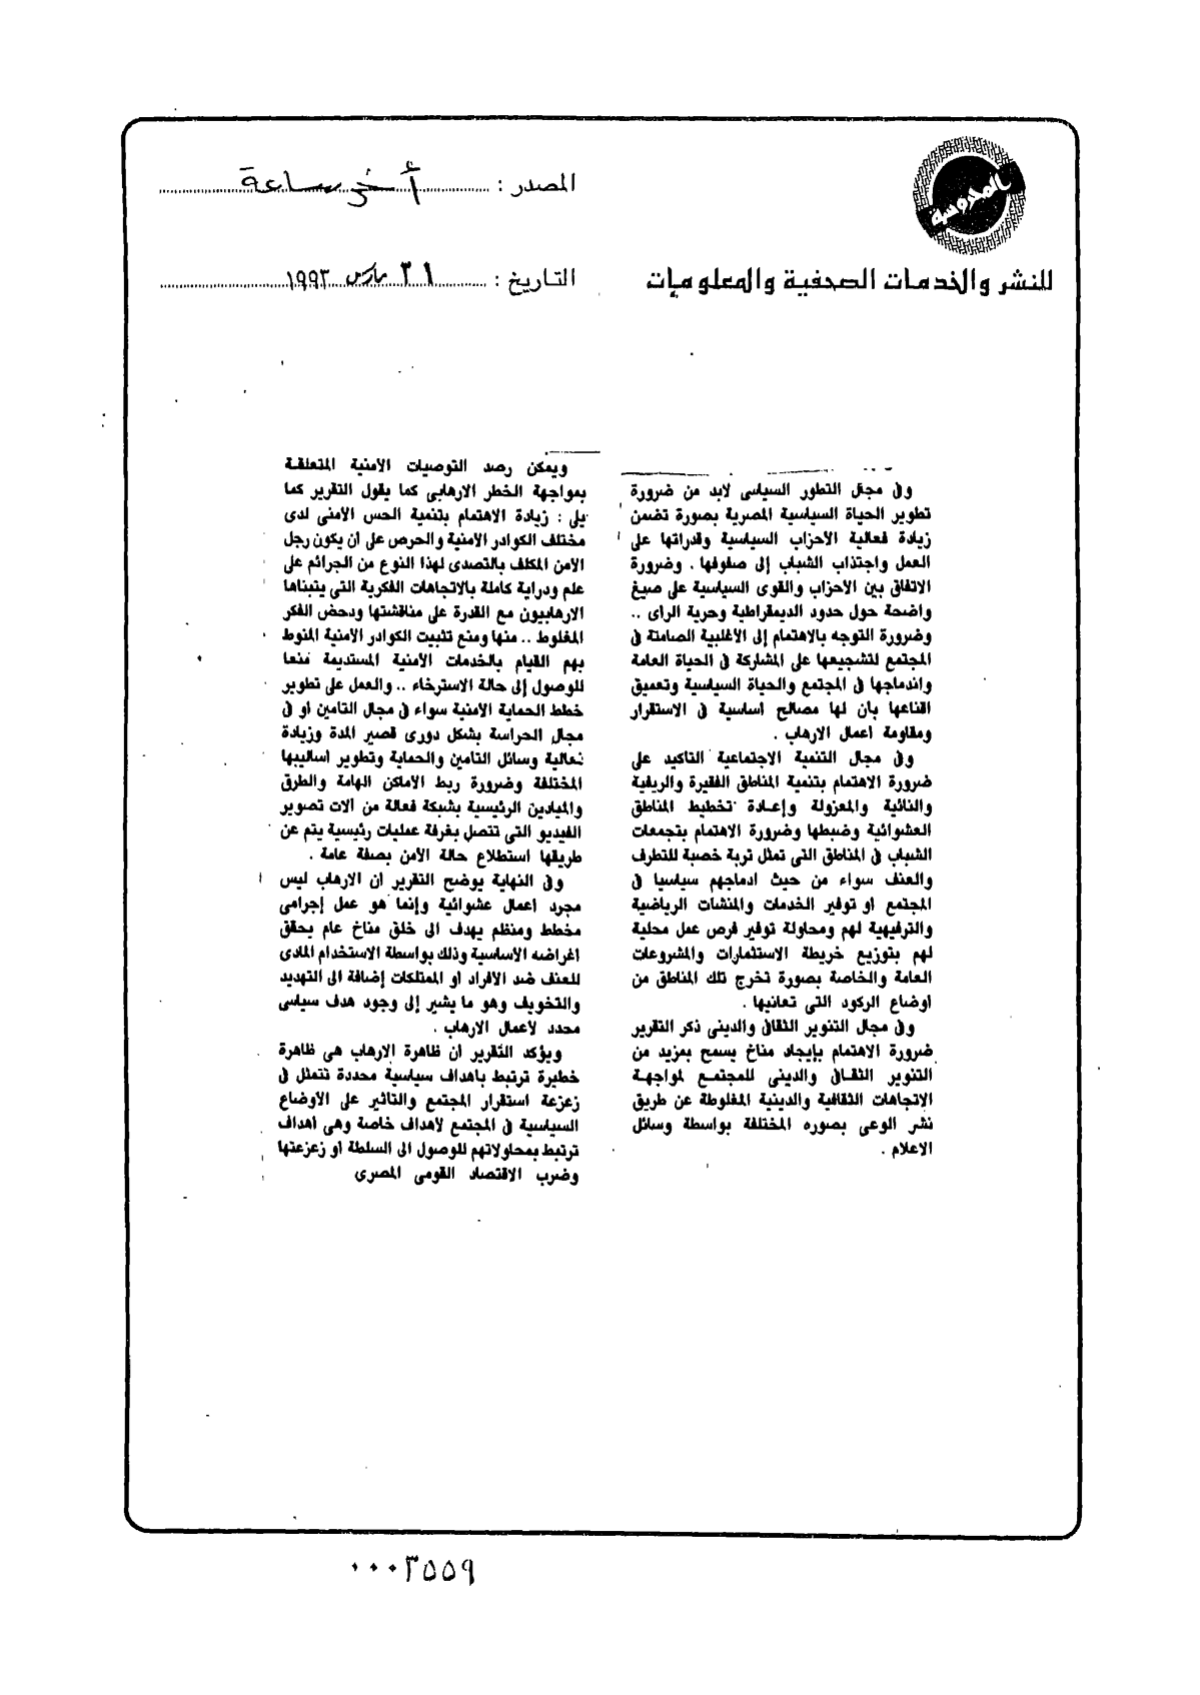 المحروسة
للنشر والخدمات الصحفية والمعلومات
المصدر : أخر ساعة
التاريخ : ٣١ مارس ١٩٩٣
وفى مجال التطور السياسى لابد من ضرورة
تطوير الحياة السياسية المصرية بصورة تضمن
زيادة فعالية الاحزاب السياسية وقدراتها على
العمل واجتذاب الشباب إلى صفوفها . وضرورة
الاتفاق بين الاحزاب والقوى السياسية على صيغ
واضحة حول حدود الديمقراطية وحرية الراى ..
وضرورة التوجه بالاهتمام إلى الاغلبية الصامتة فى
المجتمع لتشجيعها على المشاركة فى الحياة العامة
واندماجها فى المجتمع والحياة السياسية وتعميق
اقناعها بان لها مصالح اساسية فى الاستقرار
ومقاومة اعمال الارهاب .
وفى مجال التنمية الاجتماعية التاكيد على
ضرورة الاهتمام بتنمية المناطق الفقيرة والريفية
والنائية والمعزولة وإعادة تخطيط المناطق
العشوائية وضبطها وضرورة الاهتمام بتجمعات
الشباب فى المناطق التى تمثل تربة خصبة للتطرف
والعنف سواء من حيث ادماجهم سياسيا فى
المجتمع او توفير الخدمات والمنشات الرياضية
والترفيهية لهم ومحاولة توفير فرص عمل محلية
لهم بتوزيع خريطة الاستثمارات والمشروعات
العامة والخاصة بصورة تخرج تلك المناطق من
اوضاع الركود التى تعانيها .
وفى مجال التنوير الثقافى والدينى ذكر التقرير
ضرورة الاهتمام بإيجاد مناخ يسمح بمزيد من
التنوير الثقافى والدينى للمجتمع لمواجهة
الاتجاهات الثقافية والدينية المغلوطة عن طريق
نشر الوعى بصوره المختلفة بواسطة وسائل
الاعلام .
ويمكن رصد التوصيات الأمنية المتعلقة
بمواجهة الخطر الارهابى كما يقول التقرير كما
يلى : زيادة الاهتمام بتنمية الحس الامنى لدى
مختلف الكوادر الامنية والحرص على ان يكون رجل
الامن المكلف بالتصدى لهذا النوع من الجرائم على
علم ودراية كاملة بالاتجاهات الفكرية التى يتبناها
الارهابيون مع القدرة على مناقشتها ودحض الفكر
المغلوط .. منها ومنع تثبيت الكوادر الامنية المنوط
بهم القيام بالخدمات الأمنية المستديمة منعا
للوصول إلى حالة الاسترخاء .. والعمل على تطوير
خطط الحماية الامنية سواء فى مجال التامين او فى
مجال الحراسة بشكل دورى قصير المدة وزيادة
فعالية وسائل التامين والحماية وتطوير اساليبها
المختلفة وضرورة ربط الاماكن الهامة والطرق
والميادين الرئيسية بشبكة فعالة من الات تصوير
الفيديو التى تتصل بغرفة عمليات رئيسية يتم عن
طريقها استطلاع حالة الأمن بصفة عامة .
وفى النهاية يوضح التقرير ان الارهاب ليس
مجرد اعمال عشوائية وإنما هو عمل إجرامى
مخطط ومنظم يهدف الى خلق مناخ عام يحقق
اغراضه الأساسية وذلك بواسطة الاستخدام المادى
للعنف ضد الافراد او الممتلكات إضافة الى التهديد
والتخويف وهو ما يشير إلى وجود هدف سياسى
محدد لأعمال الارهاب .
ويؤكد التقرير ان ظاهرة الارهاب هى ظاهرة
خطيرة ترتبط باهداف سياسية محددة تتمثل فى
زعزعة استقرار المجتمع والتاثير على الاوضاع
السياسية فى المجتمع لأهداف خاصة وهى اهداف
ترتبط بمحاولاتهم للوصول الى السلطة او زعزعتها
وضرب الاقتصاد القومى المصرى
٠٠٠٣٥٥٩